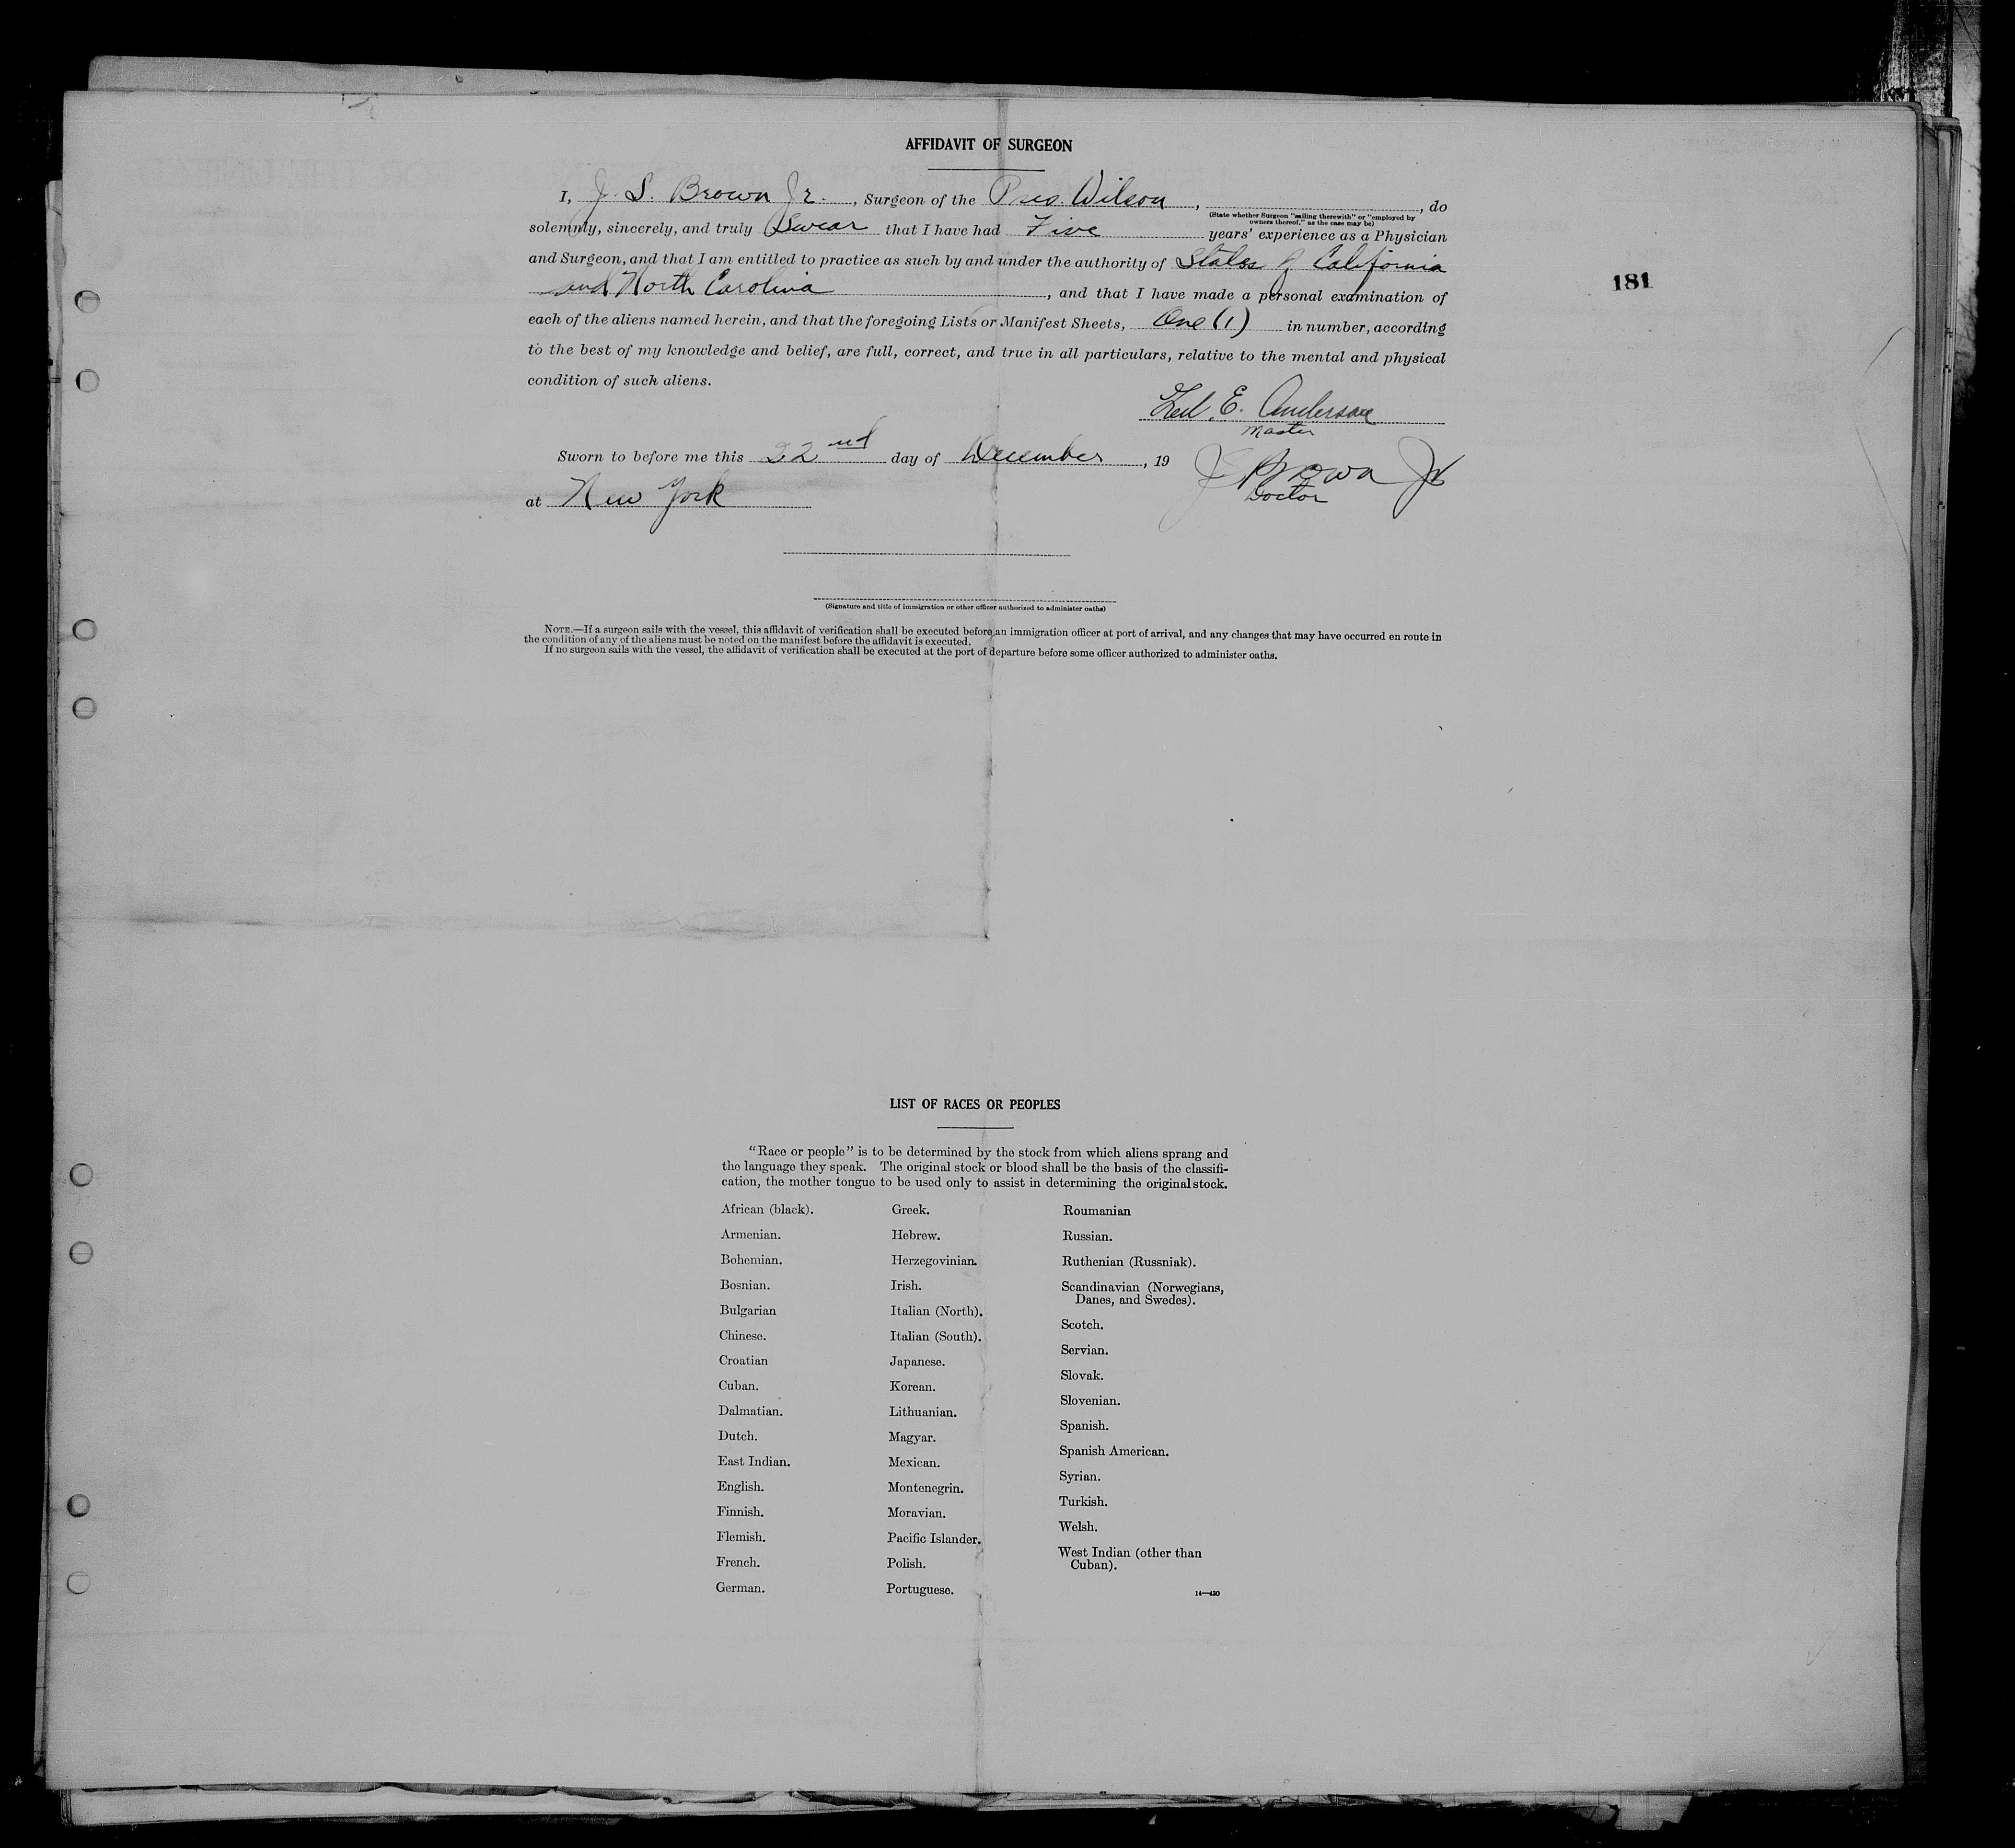 AFFIDAVIT OF SURGEON
I, J. S. Brown Jr. , Surgeon of the Pres. Wilson , , do
(State whether Surgeon "sailing therewith" or "employed by owners thereof," as the case may be)
solemnly, sincerely, and truly Swear that I have had Five years' experience as a Physician
and Surgeon, and that I am entitled to practice as such by and under the authority of States of California
and North Carolina , and that I have made a personal examination of
181
each of the aliens named herein, and that the foregoing Lists or Manifest Sheets, One (1) in number, according
to the best of my knowledge and belief, are full, correct, and true in all particulars, relative to the mental and physical
condition of such aliens.
E. Anderson
Master
Sworn to before me this 22nd day of December , 19
J S Brown Jr
Doctor
at New York
(Signature and title of immigration or other officer authorized to administer oaths)
NOTE.—If a surgeon sails with the vessel, this affidavit of verification shall be executed before an immigration officer at port of arrival, and any changes that may have occurred en route in
the condition of any of the aliens must be noted on the manifest before the affidavit is executed.
If no surgeon sails with the vessel, the affidavit of verification shall be executed at the port of departure before some officer authorized to administer oaths.
LIST OF RACES OR PEOPLES
"Race or people" is to be determined by the stock from which aliens sprang and
the language they speak. The original stock or blood shall be the basis of the classifi-
cation, the mother tongue to be used only to assist in determining the original stock.
African (black).
Armenian.
Bohemian.
Bosnian.
Bulgarian
Chinese.
Croatian
Cuban.
Dalmatian.
Dutch.
East Indian.
English.
Finnish.
Flemish.
French.
German.
Greek.
Hebrew.
Herzegovinian.
Irish.
Italian (North).
Italian (South).
Japanese.
Korean.
Lithuanian.
Magyar.
Mexican.
Montenegrin.
Moravian.
Pacific Islander.
Polish.
Portuguese.
Roumanian
Russian.
Ruthenian (Russniak).
Scandinavian (Norwegians,
Danes, and Swedes).
Scotch.
Servian.
Slovak.
Slovenian.
Spanish.
Spanish American.
Syrian.
Turkish.
Welsh.
West Indian (other than
Cuban).
14—430